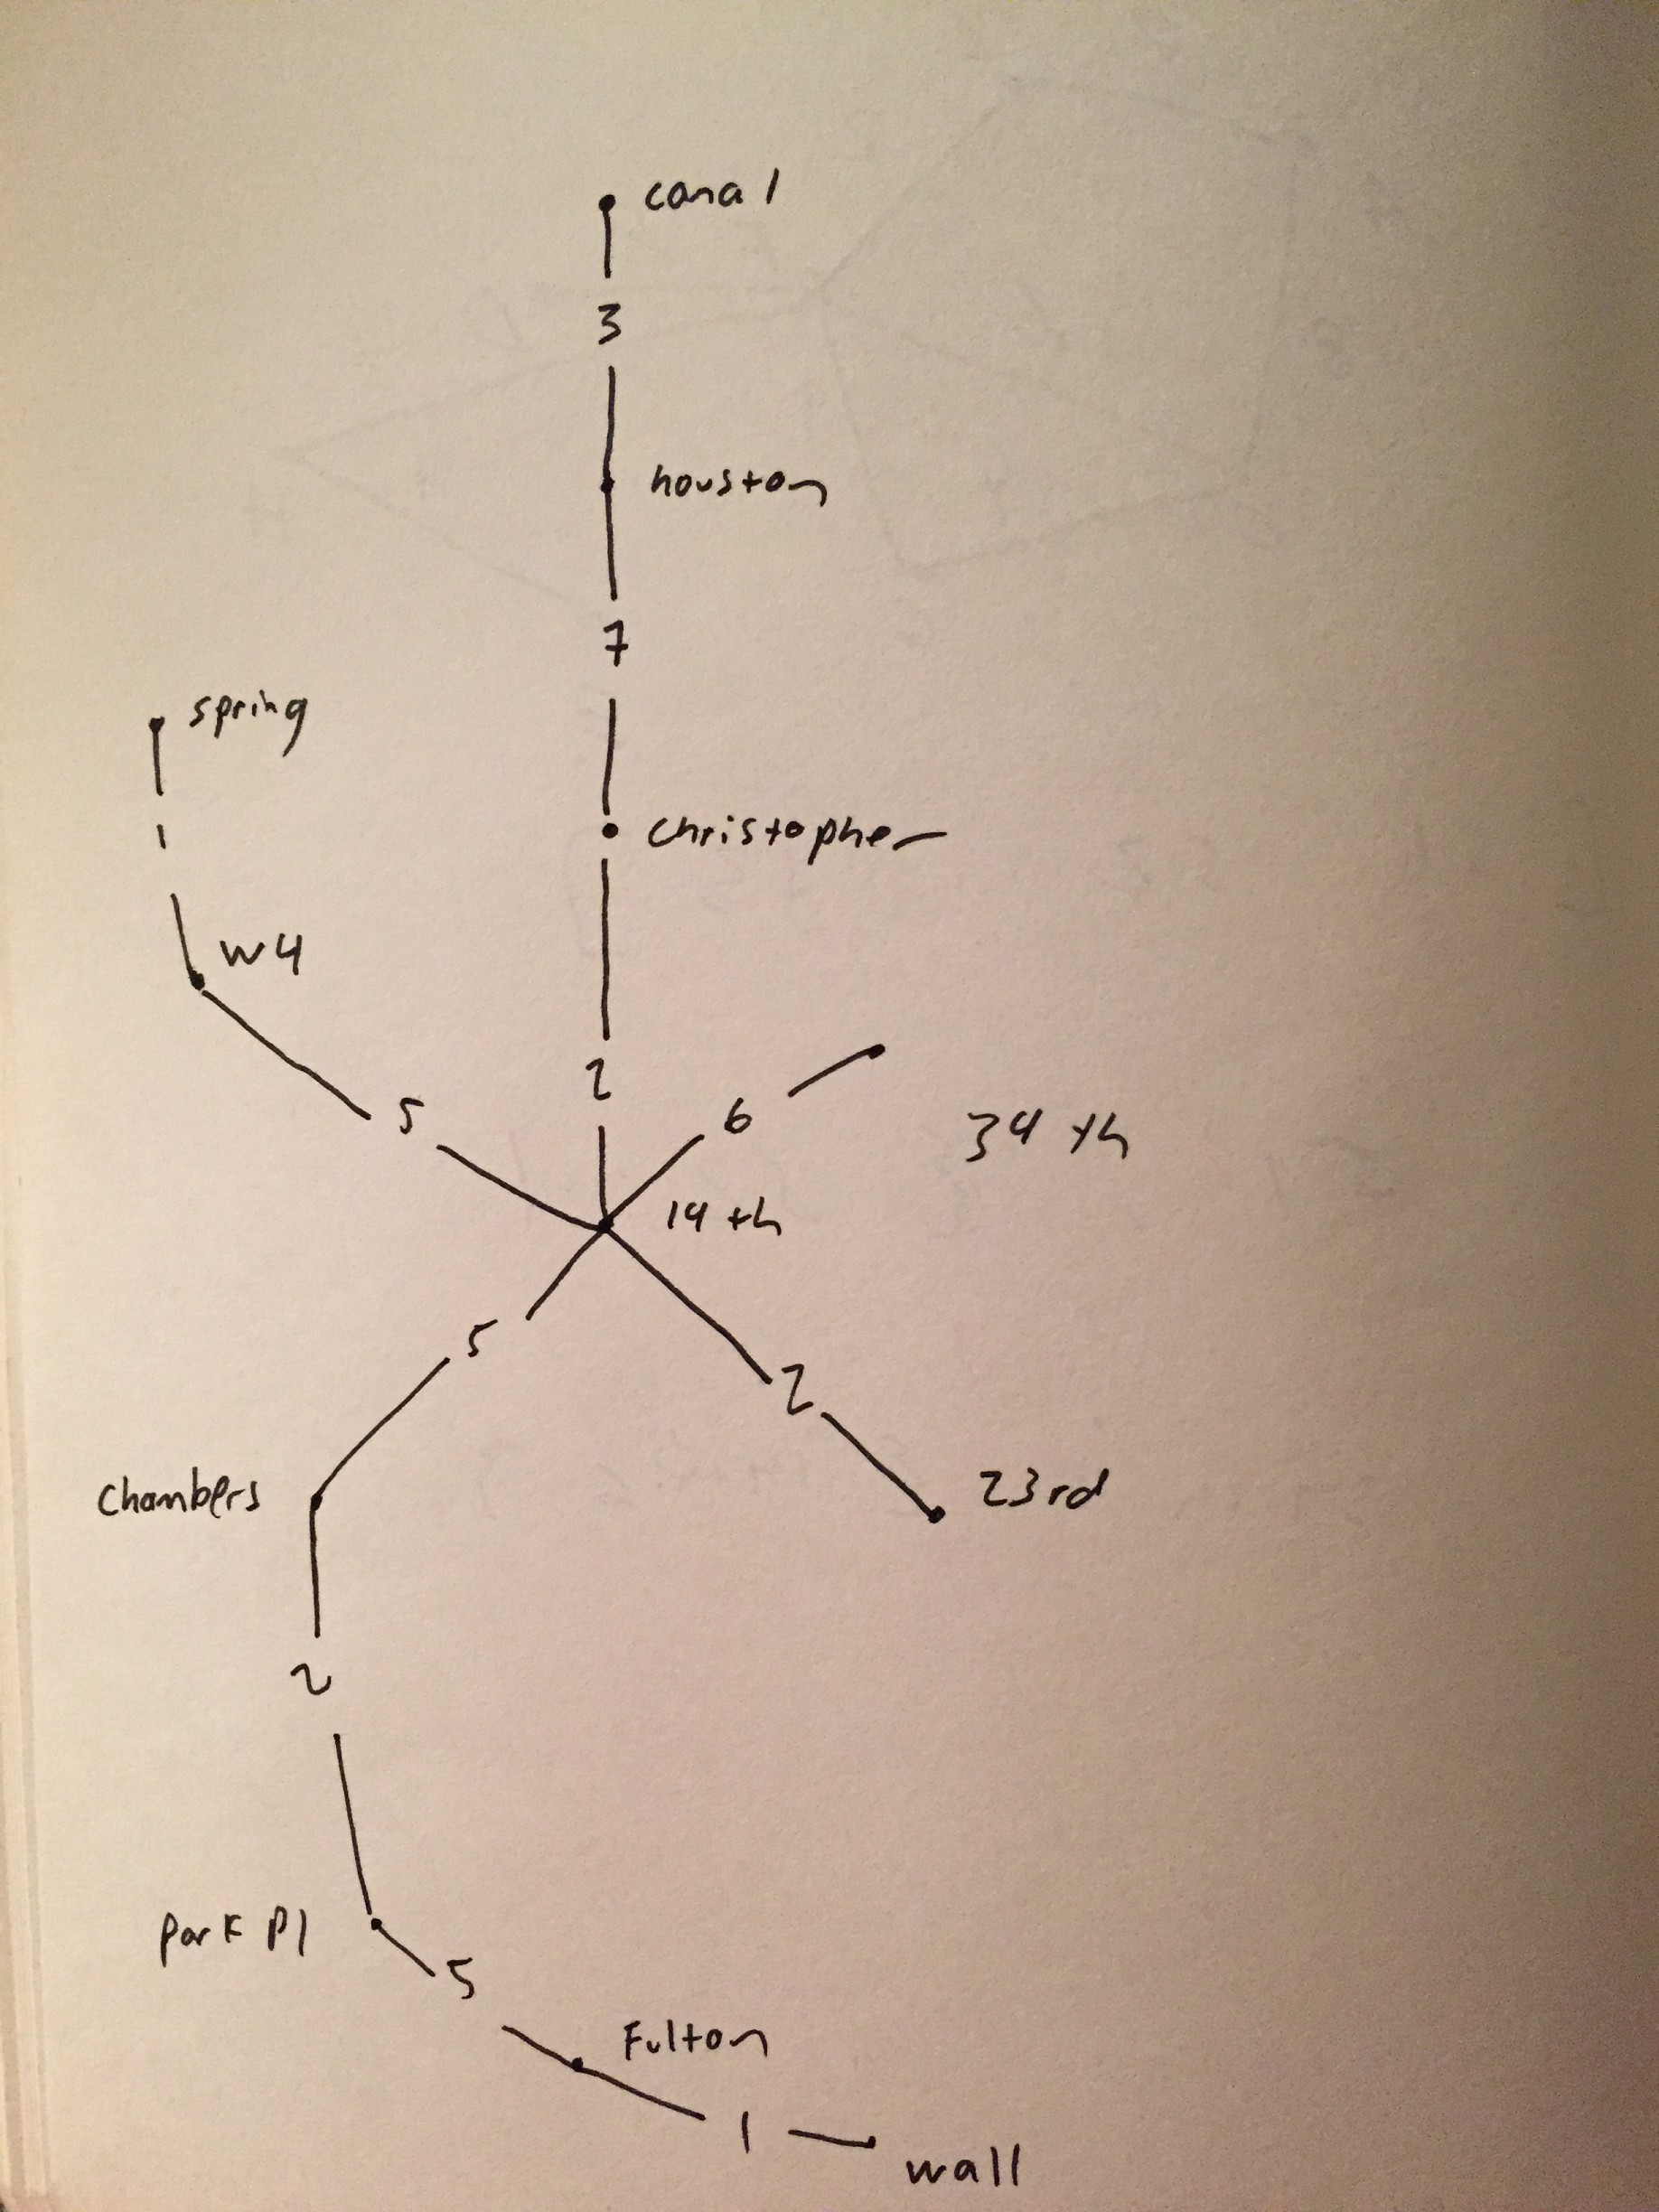 canal
3
houston
7
spring
christopher
1
w4
2
6
5
34 th
14 th
5
2
chambers
23rd
2
park pl
5
Fulton
1
wall